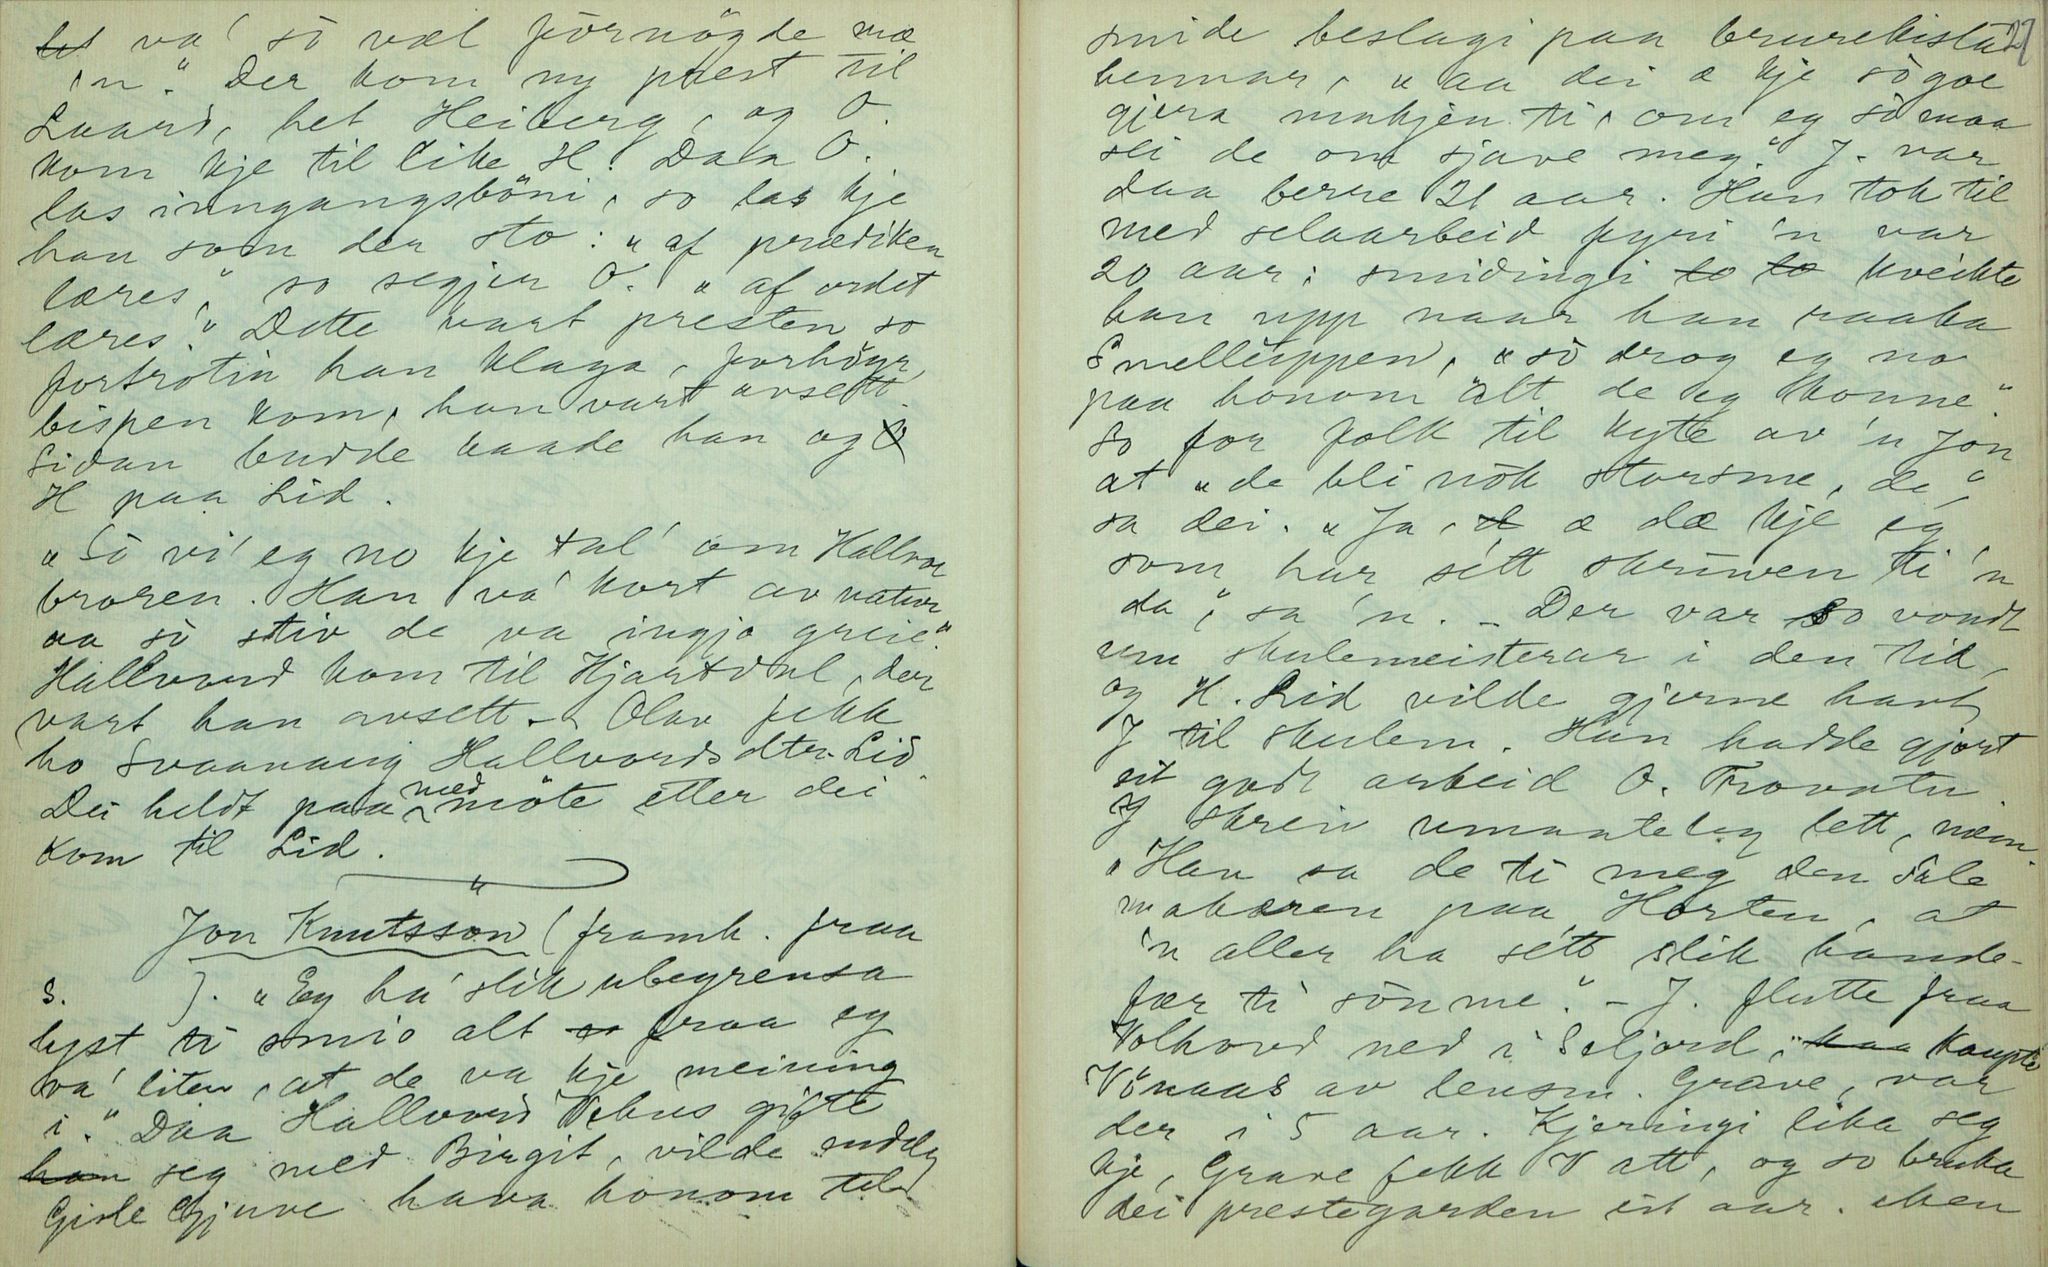 va' sò væl förnögde mæ
'n." Der kom ny prest til
Laard, het Heiberg, og O.
kom kje til like H. Daa O.
las inngangsböni, so las kje
han som der sto: "af prædiken
læres", so segjer O. "af ordet
læres." Dette vart presten so
fortrotin han klaga, forhöyr,
bispen kom, han vart avsett.
Sidan budde baade han og
H paa Lid.
"Sò vi' eg no kje tal' om Hallvor
broren. Han va' kort av natur
aa sò stiv de va ingjo greie."
Hallvord kom til Hjartdal, der
vart han avsett. - Olav fekk
ho Svaanaug Hallvordsdter Lid
Dei heldt paa med möte etter dei
kom til Lid.
Jon Knutsson (framh. fraa
s. ). "Eg ha' slik ubegrensa
lyst ti smio alt fraa eg
va' liten, at de va kje meining
i." Daa Hallvord Vehus gifte
han seg med Birgit, vilde
Gisle Gjuve hava honom til
27
smide beslagi paa brurekista
hennar, "aa dei æ kje sò goe
gjera makjen ti, om eg sò maa
sei de om sjave meg." J. var
daa berre 21 aar. Han tok til
med selaarbeid fyri 'n var
20 aar; smidingi to to kveikte
han upp naar han raaka
Snelleippen, "sò drog eg no
paa honom alt de eg konne."
So for folk til kyte av 'n Jon
at "de bli nòk storsme, de",
sa dei. "Ja, d æ dæ kje eg
som har sétt skruven ti 'n
da", sa 'n. - Der var so vondt
um skulemeisterar i den tid,
og H. Lid vilde gjerne havt
J til skulem. Han hadde gjort
eit godt arbeid O. Trovatn.
J skreiv umaateleg lett, næm.
"Han sa de ti meg den Sale
makaren paa Horten, at
'n aller ha sétt slik hande-
fær ti sönme." - J. flutte fraa
Kolhovd ned i Seljord, kaupte
Vönaas av lensm. Grave, var
der i 5 aar. Kjeringi lika seg
kje, Grave fekk V att, og so bruka
dei prestegarden eit aar. Men